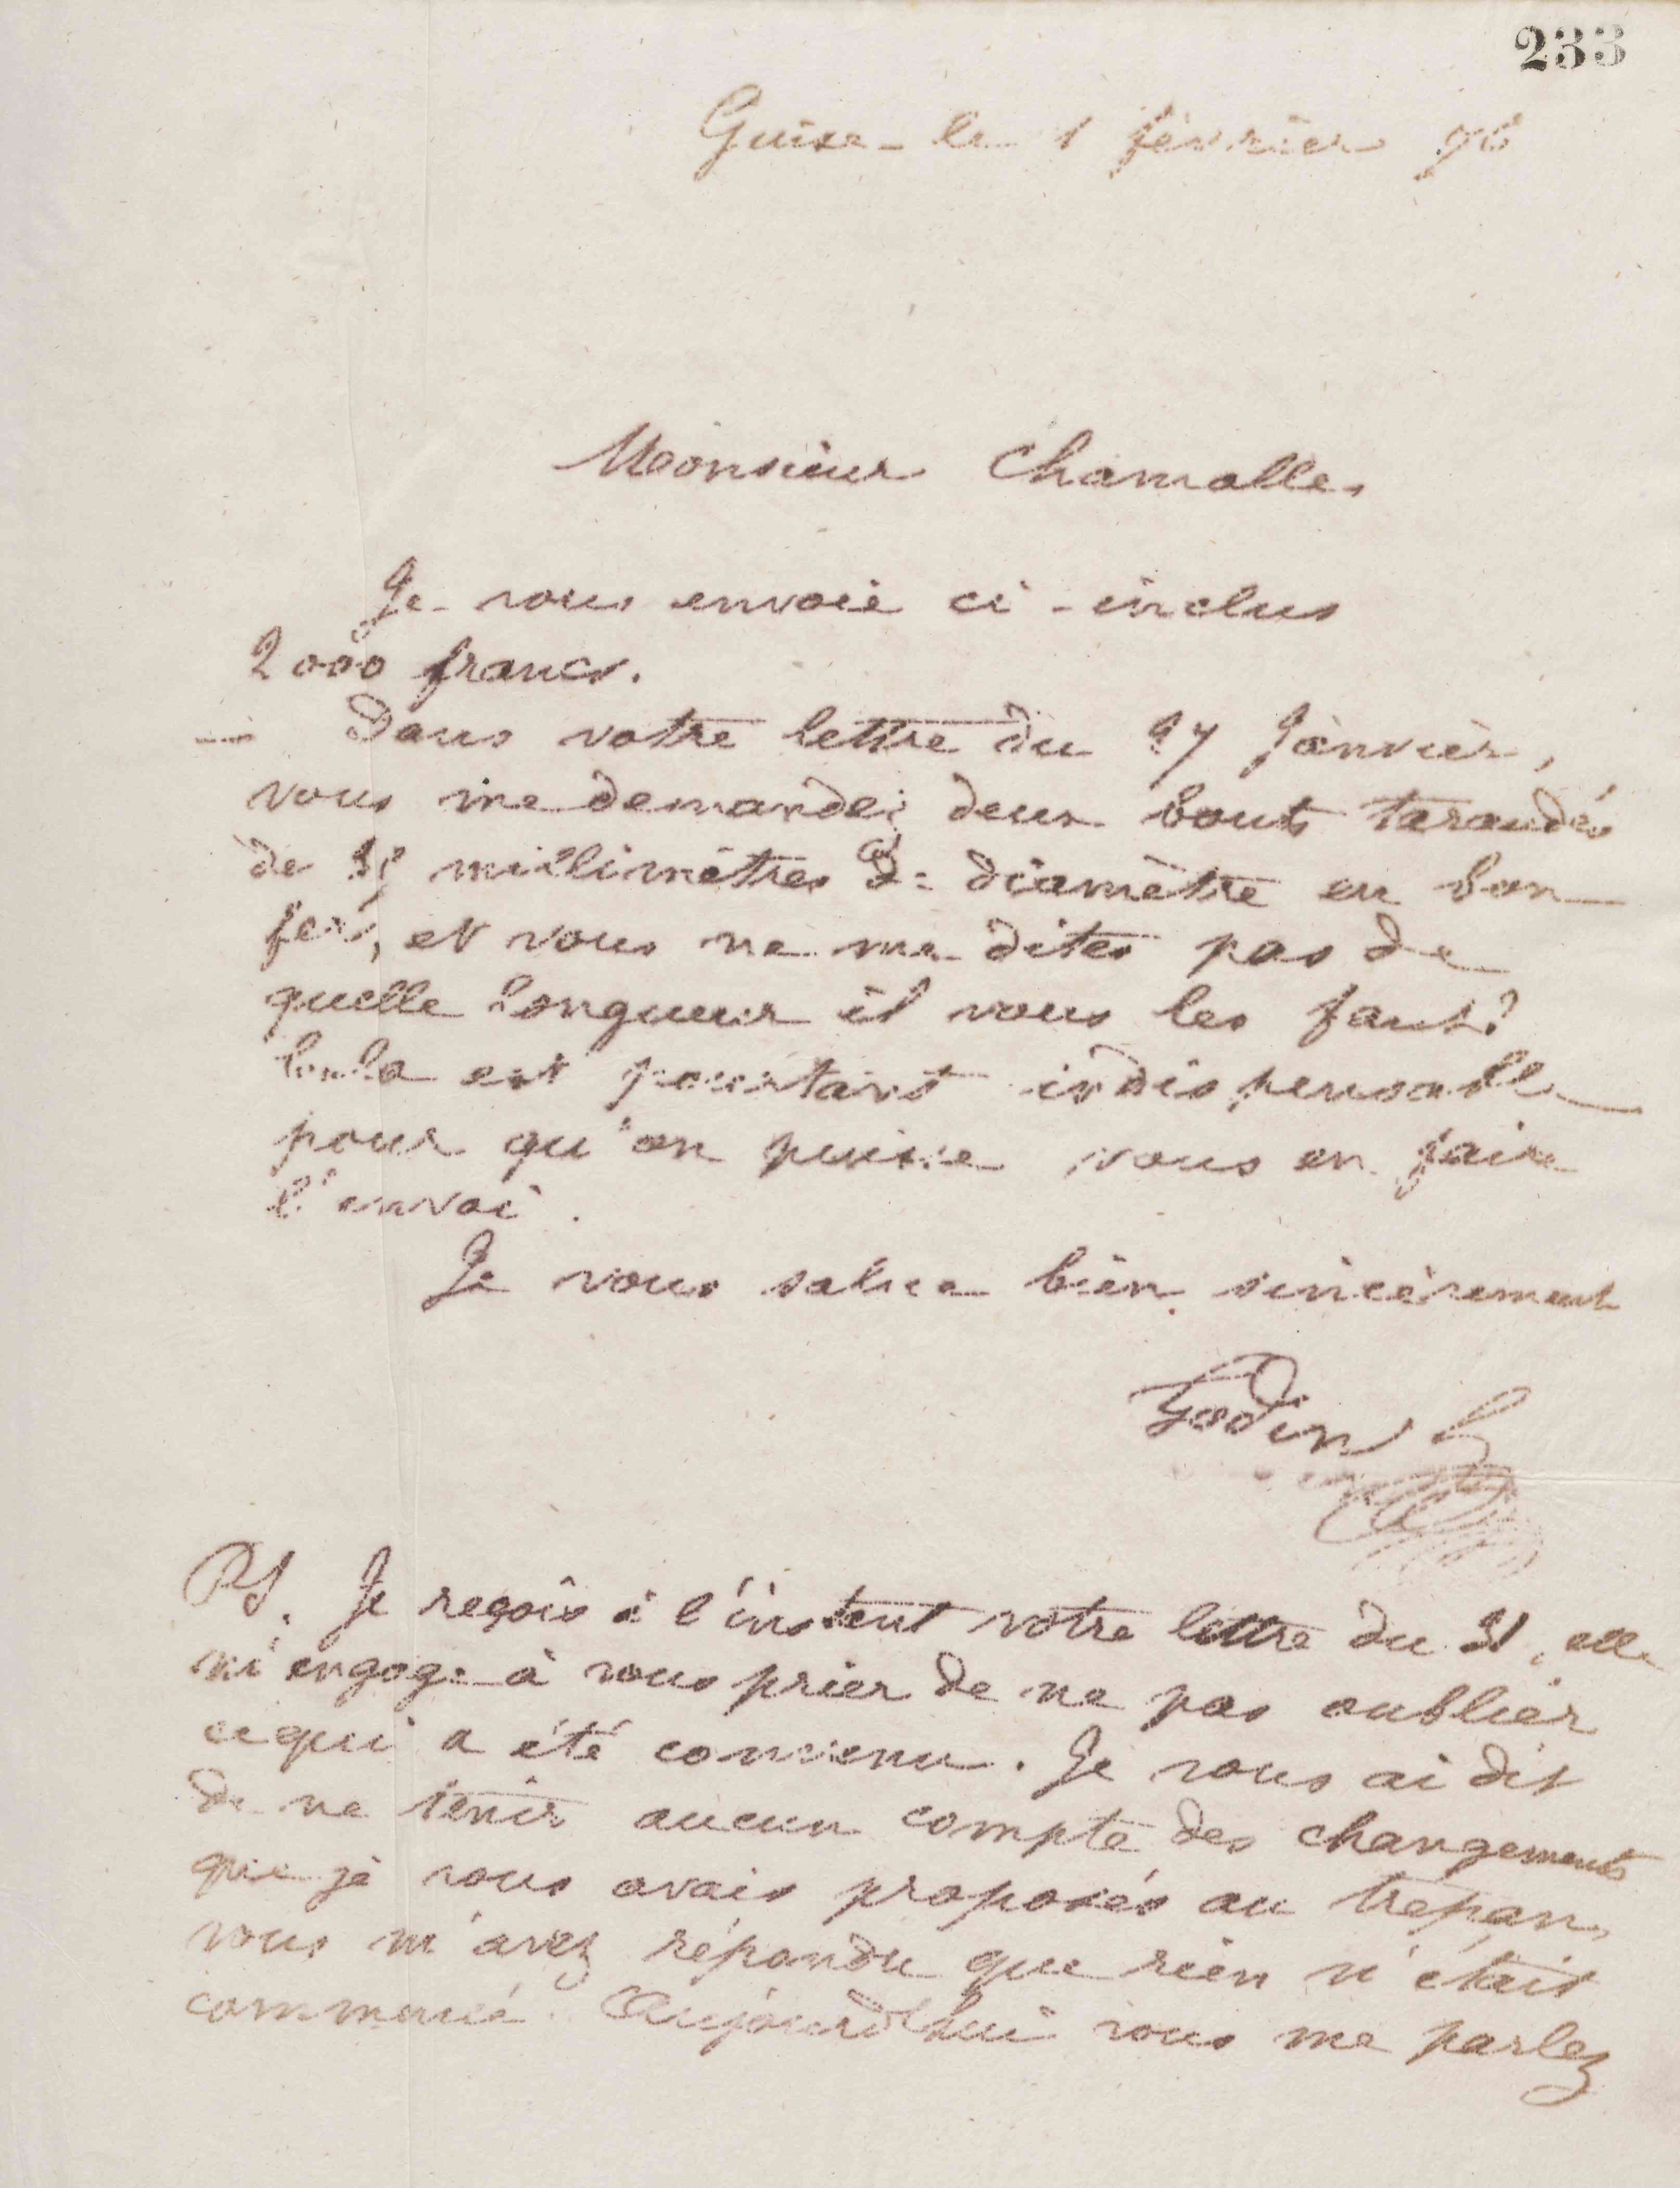 233
Guise le 1 février 76
Monsieur Chamolle
Je vous envoie ci-inclus
2000 francs.
Dans votre lettre du 27 Janvier,
vous me demandez deux bouts taraudés
de millimètres de diamètre en bon
fer, et vous ne me dites pas de
quelle longueur il vous les faut?
est pourtant indispensable
pour qu'on puisse vous en faire
l'envoi.
Je vous salue bien sincèrement
Godin
PS. Je reçois à l'instant votre lettre du 31, elle
m'engage à vous prier de ne pas oublier
ce qui a été convenu. Je vous ai dit
de ne tenir aucun compte des changements
que je vous avais proposés au trépan,
vous m'avez répondu que rien n'était
commencé. Aujourd'hui vous me parlez